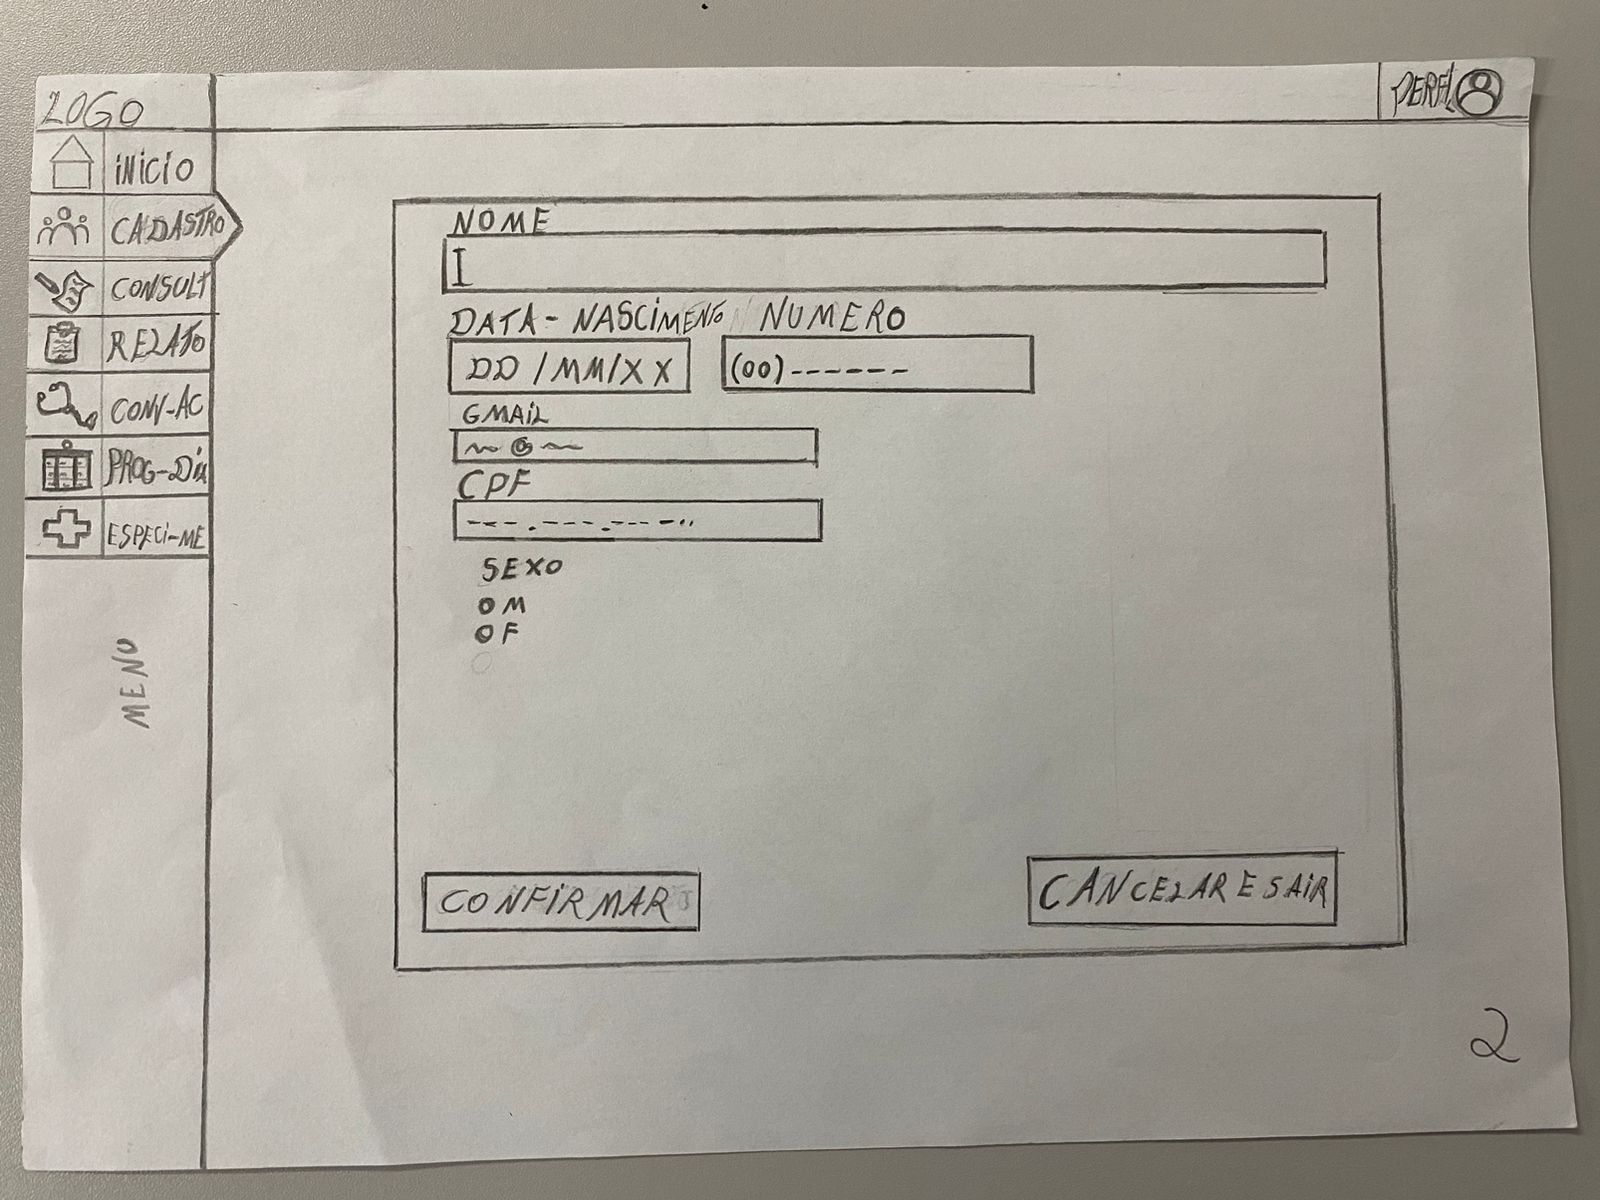 LOGO
PERFIL
INICIO
CADASTRO
CONSULT
RELATO
CONV-AC
PROG-DIA
ESPECI-ME
MENU
NOME
DATA - NASCIMENTO NUMERO
DD / MM / XX (00) ------
GMAIL
~@~
CPF
---.---.---- ..
SEXO
O M
O F
CONFIRMAR
CANCELAR E SAIR
2